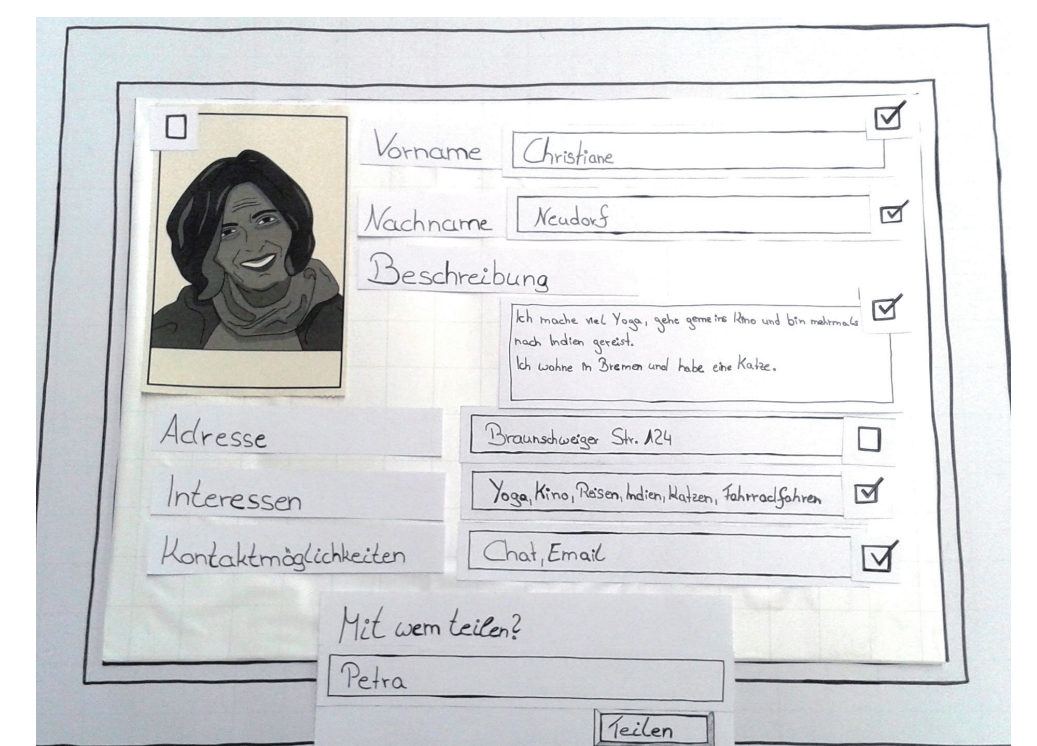 Vorname
Christiane
Nachname
Neudorf
Beschreibung
Ich mache viel Yoga, gehe gerne ins Kino und bin mehrmals
nach Indien gereist.
Ich wohne in Bremen und habe eine Katze.
Adresse
Braunschweiger Str. 124
Interessen
Yoga, Kino, Reisen, Indien, Katzen, Fahrradfahren
Kontaktmöglichkeiten
Chat, Email
Mit wem teilen?
Petra
Teilen